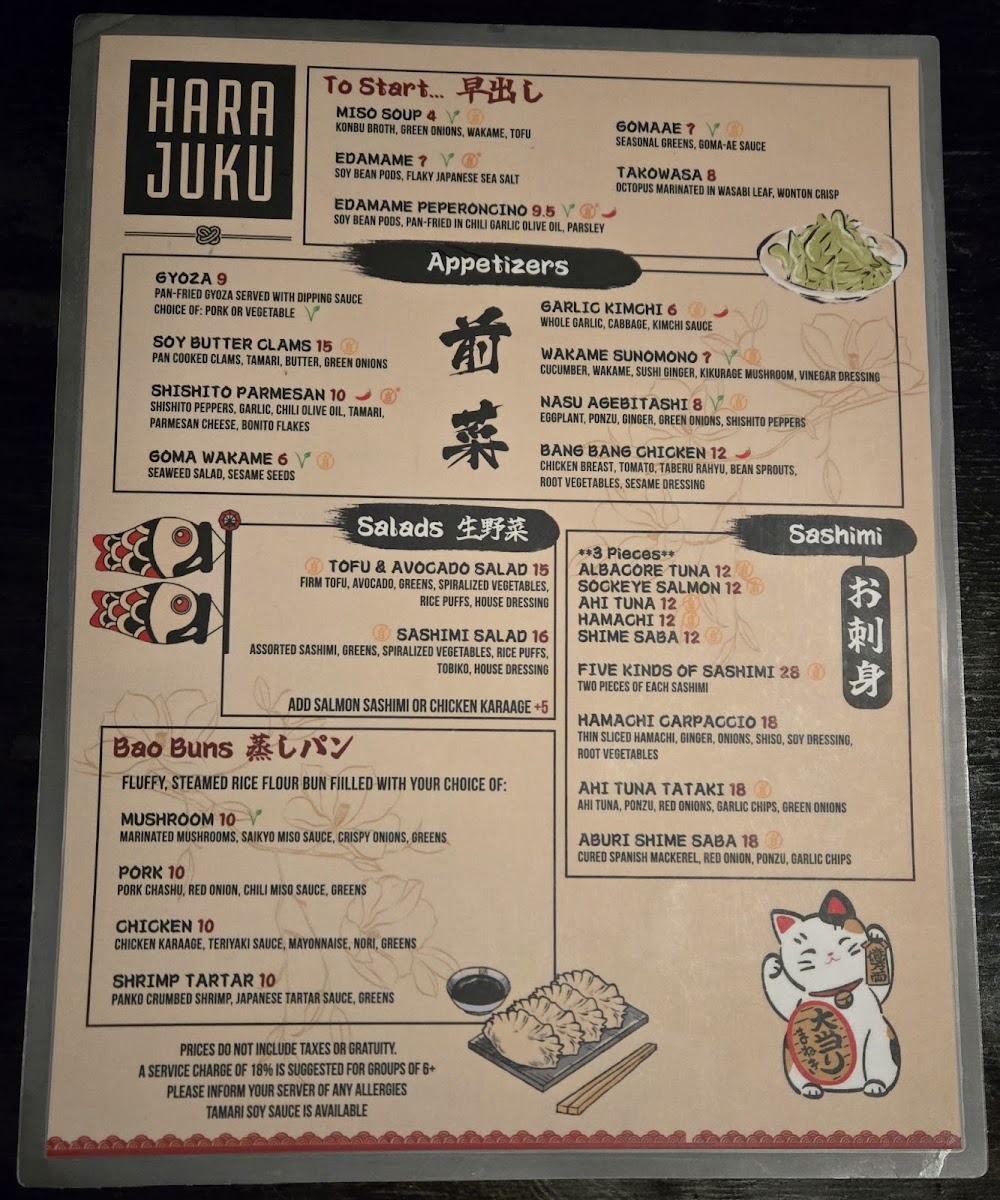 HARA
JUKU
To Start... 早出し
MISO SOUP 4
KONBU BROTH, GREEN ONIONS, WAKAME, TOFU
EDAMAME 7
SOY BEAN PODS, FLAKY JAPANESE SEA SALT
EDAMAME PEPERONCINO 9.5
SOY BEAN PODS, PAN-FRIED IN CHILI GARLIC OLIVE OIL, PARSLEY
GOMAAE 7
SEASONAL GREENS, GOMA-AE SAUCE
TAKOWASA 8
OCTOPUS MARINATED IN WASABI LEAF, WONTON CRISP
Appetizers
前
菜
GYOZA 9
PAN-FRIED GYOZA SERVED WITH DIPPING SAUCE
CHOICE OF: PORK OR VEGETABLE
SOY BUTTER CLAMS 15
PAN COOKED CLAMS, TAMARI, BUTTER, GREEN ONIONS
SHISHITO PARMESAN 10
SHISHITO PEPPERS, GARLIC, CHILI OLIVE OIL, TAMARI,
PARMESAN CHEESE, BONITO FLAKES
GOMA WAKAME 6
SEAWEED SALAD, SESAME SEEDS
GARLIC KIMCHI 6
WHOLE GARLIC, CABBAGE, KIMCHI SAUCE
WAKAME SUNOMONO 7
CUCUMBER, WAKAME, SUSHI GINGER, KIKURAGE MUSHROOM, VINEGAR DRESSING
NASU AGEBITASHI 8
EGGPLANT, PONZU, GINGER, GREEN ONIONS, SHISHITO PEPPERS
BANG BANG CHICKEN 12
CHICKEN BREAST, TOMATO, TABERU RAHYU, BEAN SPROUTS,
ROOT VEGETABLES, SESAME DRESSING
Salads 生野菜
TOFU & AVOCADO SALAD 15
FIRM TOFU, AVOCADO, GREENS, SPIRALIZED VEGETABLES,
RICE PUFFS, HOUSE DRESSING
SASHIMI SALAD 16
ASSORTED SASHIMI, GREENS, SPIRALIZED VEGETABLES, RICE PUFFS,
TOBIKO, HOUSE DRESSING
ADD SALMON SASHIMI OR CHICKEN KARAAGE +5
Sashimi
お刺身
**3 Pieces**
ALBACORE TUNA 12
SOCKEYE SALMON 12
AHI TUNA 12
HAMACHI 12
SHIME SABA 12
FIVE KINDS OF SASHIMI 28
TWO PIECES OF EACH SASHIMI
HAMACHI CARPACCIO 18
THIN SLICED HAMACHI, GINGER, ONIONS, SHISO, SOY DRESSING,
ROOT VEGETABLES
AHI TUNA TATAKI 18
AHI TUNA, PONZU, RED ONIONS, GARLIC CHIPS, GREEN ONIONS
ABURI SHIME SABA 18
CURED SPANISH MACKEREL, RED ONION, PONZU, GARLIC CHIPS
Bao Buns 蒸しパン
FLUFFY, STEAMED RICE FLOUR BUN FIILLED WITH YOUR CHOICE OF:
MUSHROOM 10
MARINATED MUSHROOMS, SAIKYO MISO SAUCE, CRISPY ONIONS, GREENS
PORK 10
PORK CHASHU, RED ONION, CHILI MISO SAUCE, GREENS
CHICKEN 10
CHICKEN KARAAGE, TERIYAKI SAUCE, MAYONNAISE, NORI, GREENS
SHRIMP TARTAR 10
PANKO CRUMBED SHRIMP, JAPANESE TARTAR SAUCE, GREENS
大当り
PRICES DO NOT INCLUDE TAXES OR GRATUITY.
A SERVICE CHARGE OF 18% IS SUGGESTED FOR GROUPS OF 6+
PLEASE INFORM YOUR SERVER OF ANY ALLERGIES
TAMARI SOY SAUCE IS AVAILABLE